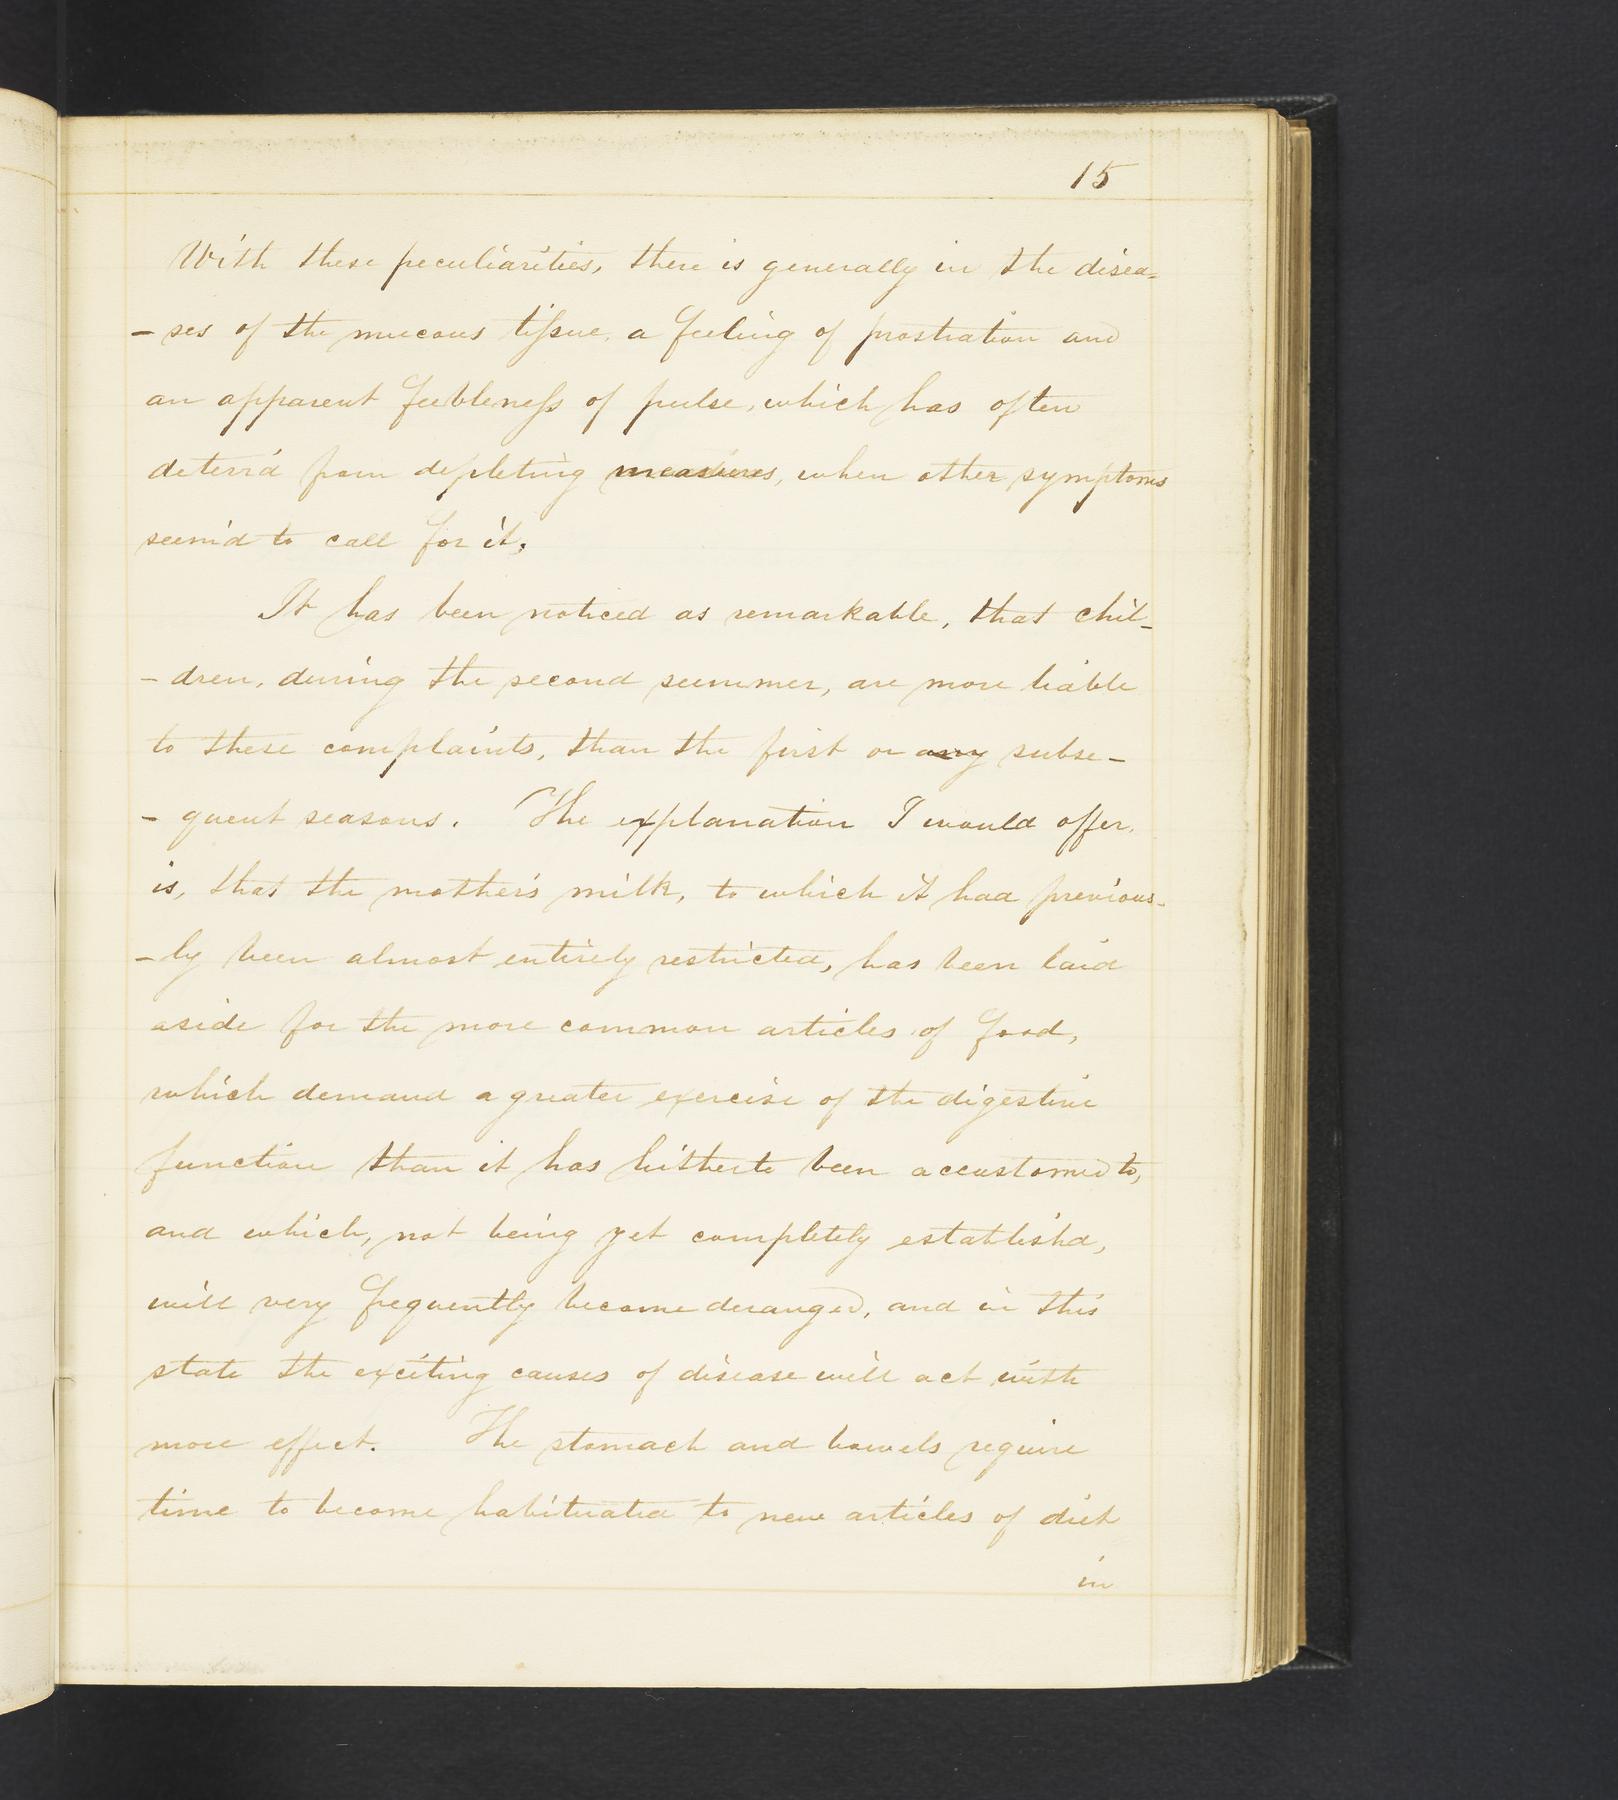 15
With these peculiarities, there is generally in the disea-
- ses of the mucous tiſsue, a feeling of prostration and
an apparent feebleneſs of pulse, which has often
deterr'd from depleting measures, when other symptoms
seem'd to call for it.
It has been noticed as remarkable, that chil-
- dren, during the second summer, are more liable
to these complaints, than the first or any subse-
- quent seasons. The explanation I would offer,
is, that the mother's milk, to which it had previous-
- ly been almost entirely restricted, has been laid
aside for the more common articles of food,
which demand a greater exercise of the digestive
function than it has hitherto been accustomed to,
and which, not being yet completely establish'd,
will very frequently become deranged, and in this
state the exciting causes of disease will act with
more effect. The stomach and bowels require
time to become habituated to new articles of diet
in